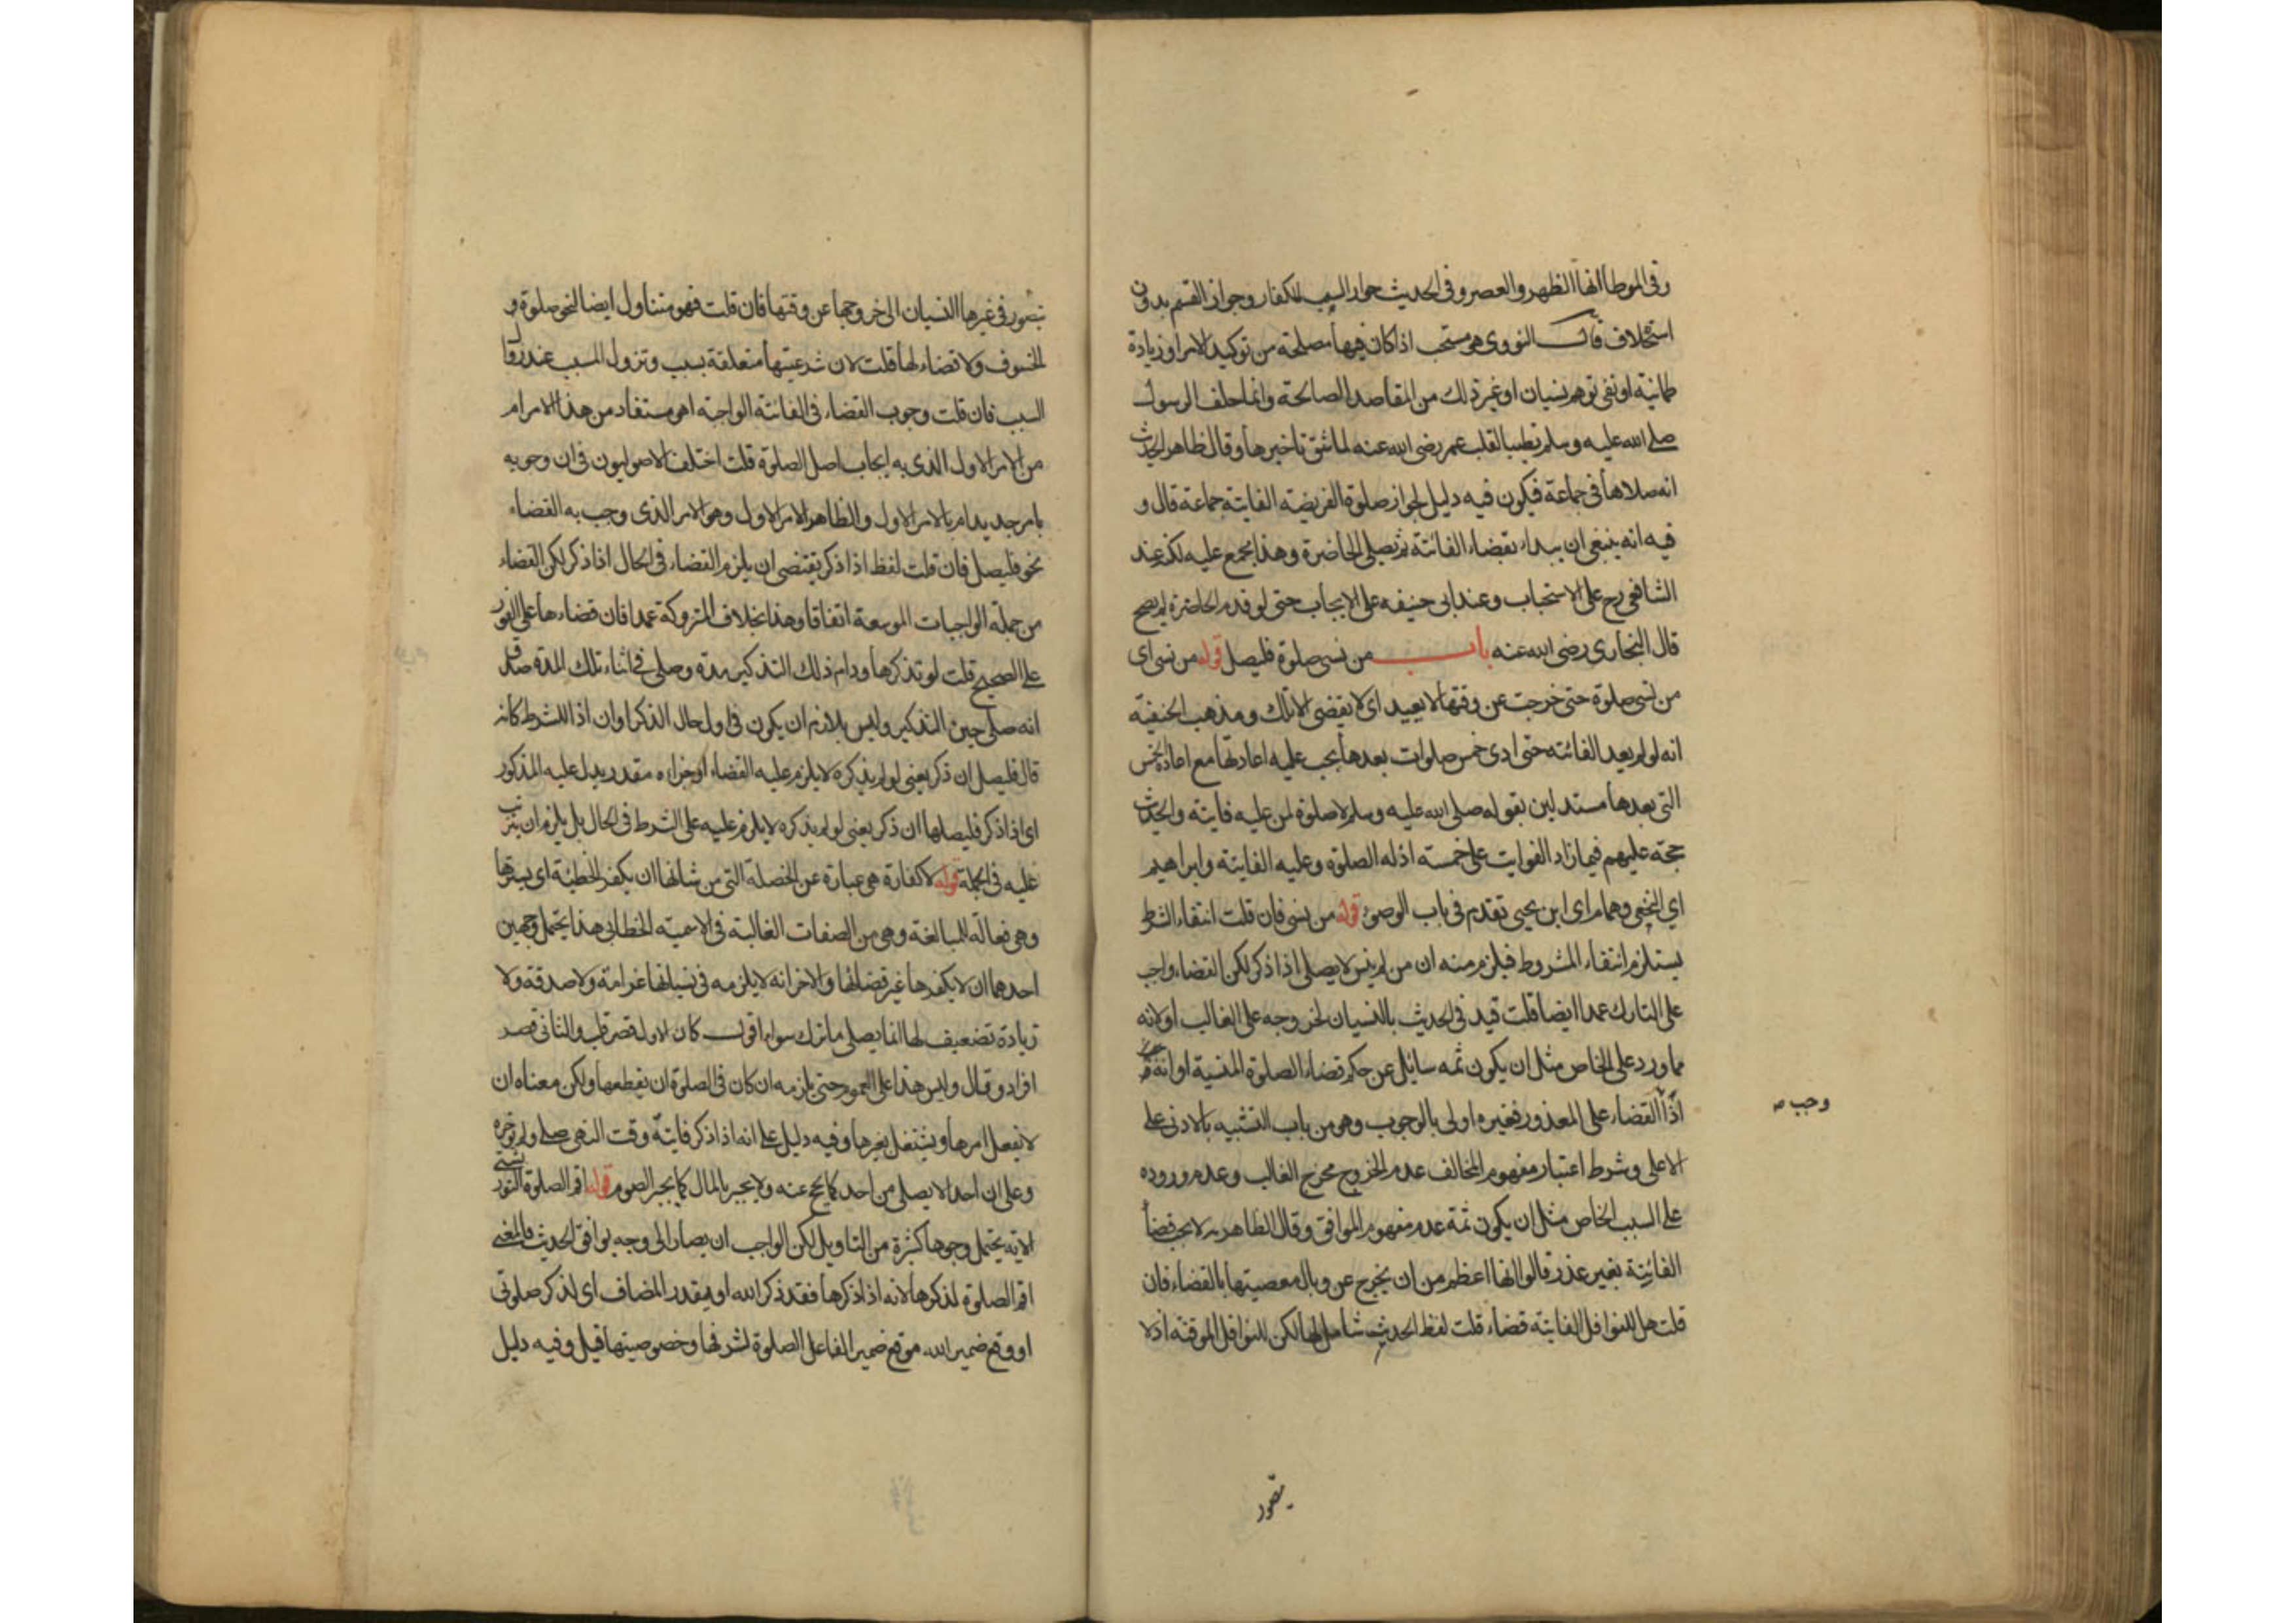 وفى الموطا انها الظهر والعصر وفى الحديث جواز السب للكفار وجواز القسم بدون
استخلاف قال النووى هو مستحب اذا كان فيها مصلحة من توكيد الامر او زيادة
طمانية او نفى توهم نسيان او غير ذلك من المقاصد الصالحة وانما حلف الرسول
صلى الله عليه وسلم تطييبا لقلب عمر رضى الله عنه لما شق تاخيرها وقال ظاهر الحديث
انه صلاها فى جماعة فيكون فيه دليل لجواز صلوة الفريضة الفايتة جماعة قال و
فيه انه ينبغى ان يبداء بقضاء الفائتة ثم يصلى الحاضرة وهذا مجمع عليه لكنه عند
الشافعى رح على الاستحباب وعند ابى حنيفه على الايجاب حتى لو قدم الحاضرة لم يصح
قال البخارى رضى الله عنه باب من نسى صلوة فليصل قوله من نسى اى
من نسى صلوة حتى خرجت عن وقتها لا يعيد اى لا يقضى الا تلك ومذهب الحنفية
انه لو لم يعد الفائته حتى ادى خمس صلوات بعدها يجب عليه اعادتها مع اعادة الخمس
التى بعدها مستدلين بقوله صلى الله عليه وسلم لا صلوة لمن عليه فايتة والحديث
حجة عليهم فيما زاد الفوايت على خمسة اذ له الصلوة وعليه الفايتة وابراهيم
اى النخعى وهمام اى ابن يحيى تقدم فى باب الوضوء قوله من نسى فان قلت انتفاء الشرط
يستلزم انتفاء المشروط فيلزم منه ان من لم ينس لا يصلى اذا ذكر لكن القضاء واجب
على التارك عمدا ايضا قلت قيد فى الحديث بالنسيان لخروجه على الغالب او لانه
مما ورد على الخاص مثل ان يكون ثمه سائل عن حكم قضاء الصلوة المنسية او انه
اذا القضاء على المعذور فغيره اولى بالوجوب وهو من باب التنبيه بالادنى على
وجب صـ
الاعلى وشرط اعتبار مفهوم المخالف عدم الخروج مخرج الغالب وعدم وروده
على السبب الخاص مثل ان يكون ثمة عدم مفهوم الموافق وقال الظاهريه لا يجب قضأ
الفائتة بغير عذر قالوا انها اعظم من ان يخرج عن وبال معصيتها بالقضاء فان
قلت هل للنوافل الفايتة قضاء قلت لفظ الحديث شامل لها لكن للنوافل الموقتة اذ لا
يتصور
يتصور فى غيرها النسيان الى خروجها عن وقتها فان قلت فهو متناول ايضا لنحو صلوة
الخسوف ولا قضاء لها قلت لان شرعيتها متعلقة بسبب وتزول المسبب عند زوال
السبب فان قلت وجوب القضاء فى الفائتة الواجبة اهو مستفاد من هذا الامر ام
من الامر الاول الذى به ايجاب اصل الصلوة قلت اختلف الاصوليون فى ان وجوبه
بامر جديد ام بالامر الاول والظاهر الامر الاول وهو الامر الذى وجب به القضاء
نحو فليصل فان قلت لفظ اذا ذكر يقتضى ان يلزم القضاء فى الحال اذا ذكر لكن القضاء
من جملة الواجبات الموسعة اتفاقا وهذا بخلاف المتروكة عمدا فان قضاءها على الفور
على الصحيح قلت لو تذكرها ودام ذلك التذكير مدة وصلى فى اثناء تلك المدة صدق
انه صلى حين التذكير وليس بلازم ان يكون فى اول حال الذكر او ان اذا للشرط كانه
قال فليصل ان ذكر يعنى لو لم يذكره لا يلزم عليه القضاء او جزاءه مقدر يدل عليه المذكور
اى اذا ذكر فليصلها ان ذكر يعنى لو لم يذكره لا يلزم عليه على الشرط فى الحال بل يلزم ان يترتب
عليه فى الجملة قوله لا كفارة هى عبارة عن الخصلة التى من شانها ان يكفر الخطيئة اى يسترها
وهى فعالة للمبالغة وهى من الصفات الغالبة فى الاسمية الخطابى هذا يحتمل وجهين
احدهما ان لا يكفرها غير قضائها والاخر انه لا يلزمه فى نسيانها غرامة ولا صدقة ولا
زيادة تضعيف لها انما يصلى ما ترك سواء اقول كان الاول قصر قلب والثانى قصر
افراد وقال وليس هذا على العموم حتى يلزمه ان كان فى الصلوة ان يقطعها ولكن معناه ان
لا يغفل امرها ويشتغل بغيرها وفيه دليل على انه اذا ذكر فايتة وقت النهى صلى ولم يؤخره
وعلى ان احدا لا يصلى من احد كما يحج عنه ولا يجبر بالمال كما يجبر الصوم قوله اقم الصلوة
الاية يحتمل وجوها كثيرة من التاويل لكن الواجب ان يصار الى وجه يوافق الحديث فالمعنى
اقم الصلوة لذكرها لانه اذا ذكرها فقد ذكر الله او يقدر المضاف اى لذكر صلوتى
او وقع ضمير الله موقع ضمير الفاعل الصلوة لشرفها وخصوصيتها قيل وفيه دليل